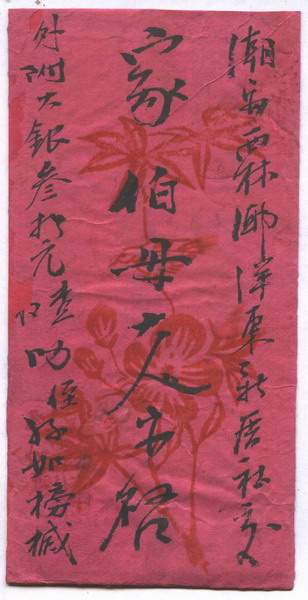 潮安西林鄉洋東新居社交
家伯母大人安啓
外附大銀叁拾元查收 叻侄如榜椷